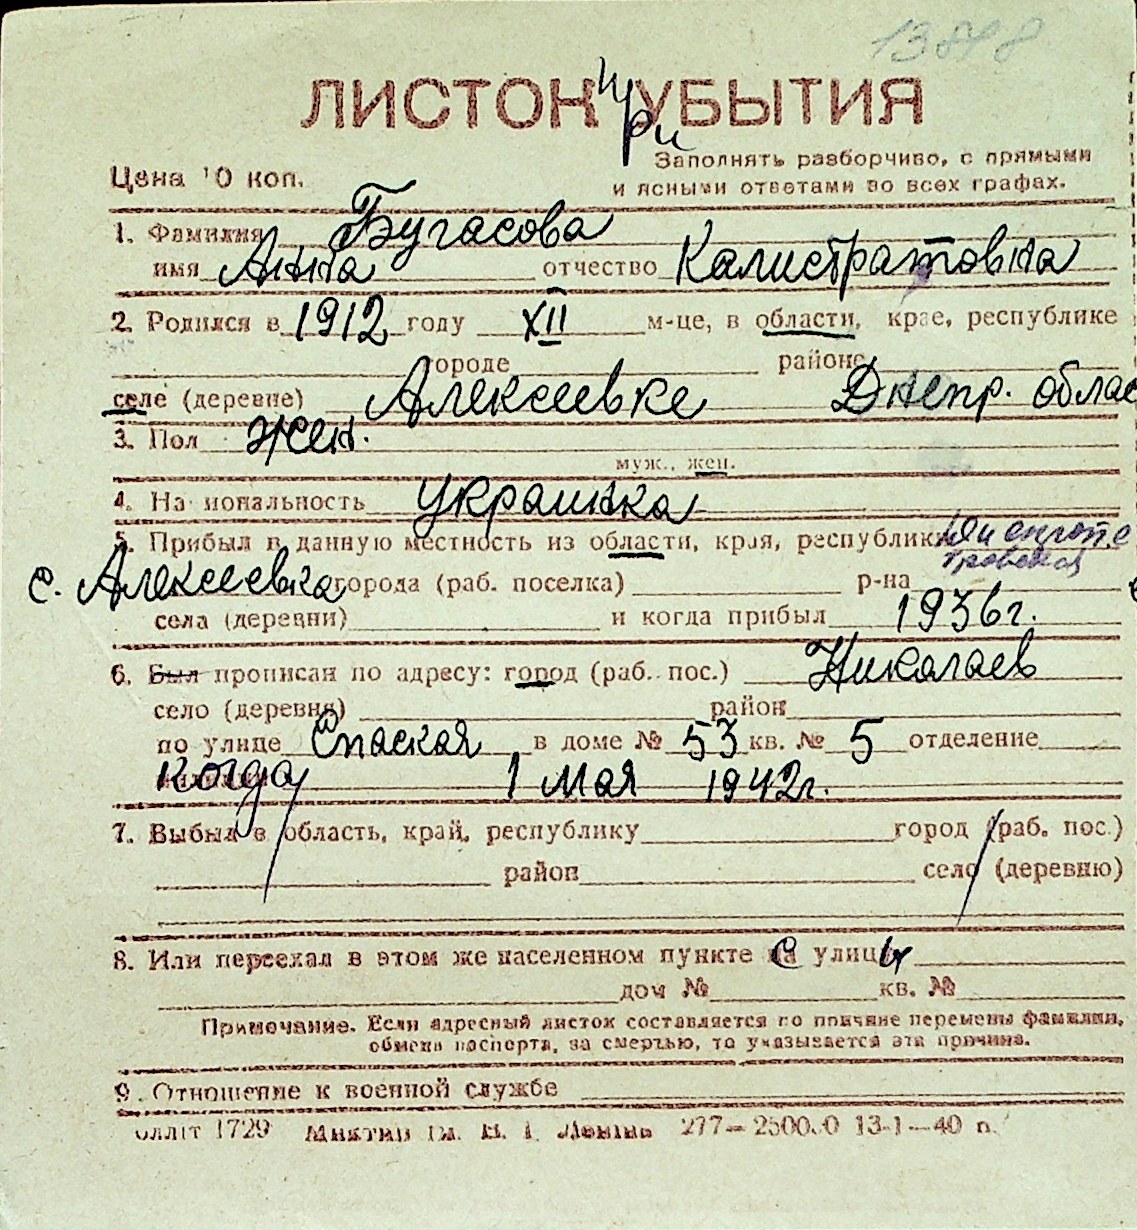 13848
ЛИСТОК УБЫТИЯ
при
Заполнять разборчиво, с прямыми
Цена 10 коп. и ясными ответами во всех графах.
1. Фамилия Бугасова
имя Анна отчество Калистратовна
2. Родился в 1912 году XII м-це, в области, крае, республике
городе районе
селе (деревне) Алексеевке Днепр. облас
3. Пол жен.
муж., жен.
4. Национальность украинка
5. Прибыл в данную местность из области, края, республики
с. Алексеевка города (раб. поселка) р-на
села (деревни) и когда прибыл 1936 г.
6. Был прописан по адресу: город (раб. пос.) Николаев
село (деревня) район
по улице Спаская в доме № 53 кв. № 5 отделение
Когда 1 мая 1942 г.
7. Выбыл в область, край, республику город (раб. пос.)
район село (деревню)
8. Или переехал в этом же населенном пункте с улицы
дом № кв. №
Примечание. Если адресный листок составляется по причине перемены фамилии,
обмена паспорта, за смертью, то указывается эта причина.
9. Отношение к военной службе
1729 277— 13-1—40